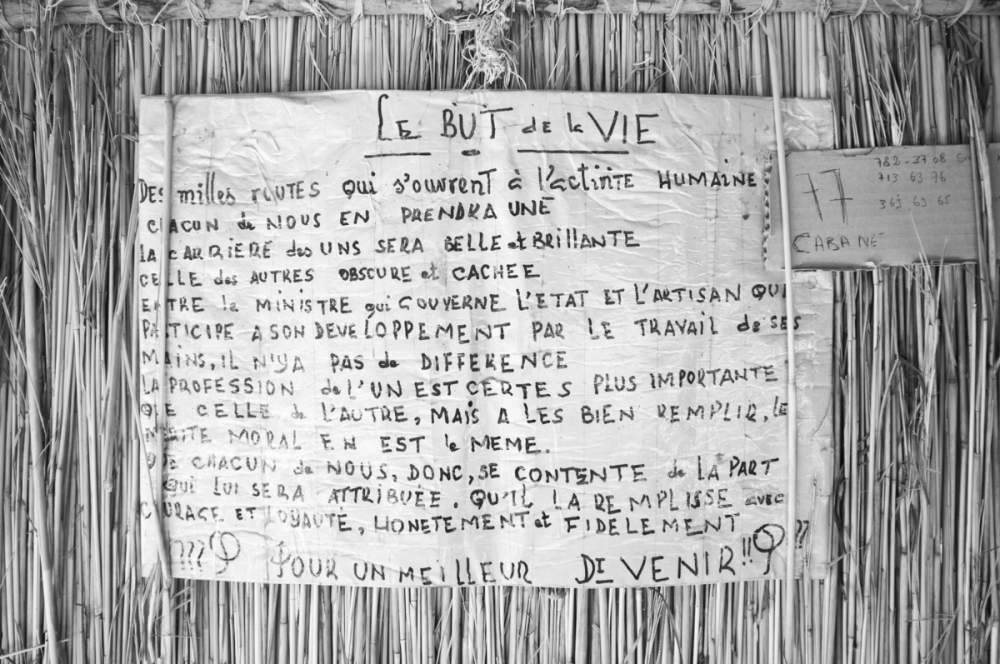 LE BUT de la VIE
DES milles ROUTES qui s'ouvrent à l'actinte HUMAINE
CHACUN de NOUS EN PRENDRA UNE
LA CARRIERE des UNS SERA BELLE et BRILLANTE
CELLE des AUTRES OBSCURE et CACHEE
ENTRE le MINISTRE qui GOUVERNE L'ETAT ET L'ARTISAN QUI
PARTICIPE A SON DEVELOPPEMENT PAR LE TRAVAIL de SES
MAINS, IL N'YA PAS de DIFFERENCE
LA PROFESSION de L'UN EST CERTES PLUS IMPORTANTE
QUE CELLE de L'AUTRE, MAIS A LES BIEN REMPLIR, LE
MERITE MORAL EN EST le MEME.
QUE CHACUN de NOUS, DONC, SE CONTENTE de LA PART
QUI LUI SERA ATTRIBUÉE. QU'IL LA REMPLISSE avec
COURAGE ET LOYAUTÉ, HONETEMENT et FIDELEMENT
??? POUR UN MEILLEUR DEVENIR!! ??
782-37 08
77 713 63 76
363 63 65
CABANE